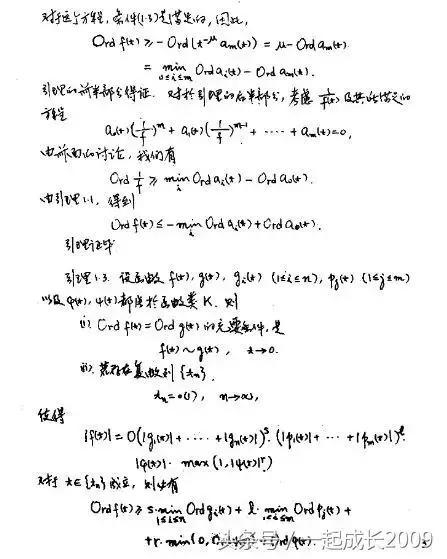 对于这个方程，条件(1.3)是满足的，因此，
Ord f(t) ≥ -Ord(t^{-μ} a_m(t)) = μ - Ord a_m(t)
= min_{0≤i≤m} Ord a_i(t) - Ord a_m(t).
引理的前半部分得证. 对于引理的后半部分，考虑 1/f(t) 及其所满足的
方程
a_0(t)(1/f)^m + a_1(t)(1/f)^{m-1} + ‥‥ + a_m(t)=0,
由前面的讨论，我们有
Ord 1/f ≥ min_i Ord a_i(t) - Ord a_0(t).
由引理1.1, 得到
Ord f(t) ≤ -min_i Ord a_i(t) + Ord a_0(t).
引理证毕
引理1.3. 设函数 f(t), g(t), g_i(t) (1≤i≤n), p_j(t) (1≤j≤m)
以及 φ(t), ψ(t) 都属于函数类 K. 则
(i) Ord f(t) = Ord g(t) 的充要条件, 是
f(t) ~ g(t), t→0.
(ii) 若存在复数列 {t_n},
t_n = o(1), n→∞,
使得
|f(t)| = O(|g_1(t)| + ‥‥ + |g_n(t)|)^s · (|p_1(t)| + ‥‥ + |p_m(t)|)^l ·
|φ(t)| · max(1, |ψ(t)|^r)
对于 t∈{t_n} 成立, 则必有
Ord f(t) ≥ s·min_{1≤i≤n} Ord g_i(t) + l·min_{1≤j≤m} Ord p_j(t) +
+r·min(0, Ord φ(t).
头条号 / 一起成长2009